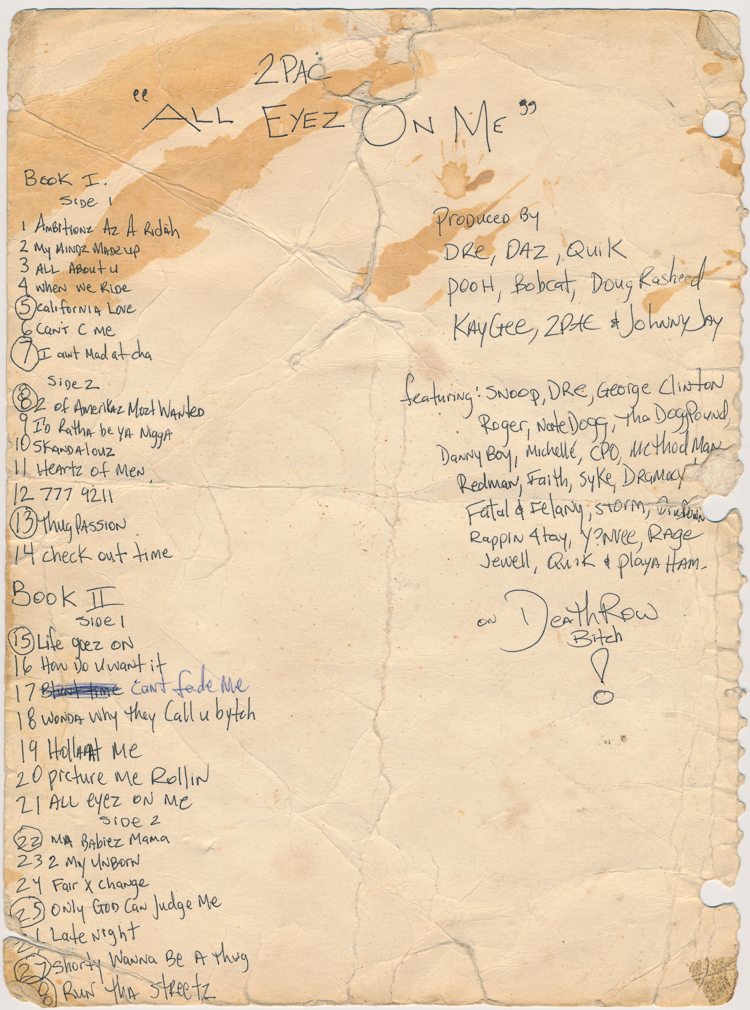 2PAC
"ALL EYEZ ON ME"
Book I.
Side 1
1 Ambitionz Az A Ridah
2 My Mindz Made up
3 All About u
4 when we Ride
5 California Love
6 Can't C me
7 I aint Mad at cha
Side 2
8 2 of Amerikaz Most Wanted
9 I'd Ratha be ya Nigga
10 Skandalouz
11 Heartz of Men,
12 777 9211
13 Thug Passion
14 check out time
Book II
Side 1
15 Life goez on
16 How Do u want it
17 Blunt time can't fade Me
18 wonda why they Call u bytch
19 Holla At Me
20 picture me Rollin
21 ALL eyez on Me
Side 2
22 Ma Babiez Mama
23 2 My Unborn
24 Fair X change
25 Only God Can Judge Me
Late night
27 Shorty Wanna Be A thug
8 Run Tha Streetz
Produced By
DRE, DAZ, QuiK
POOH, Bobcat, Doug Rasheed
KAYGEE, 2PAC & Johnny Jay
featuring: SNOOP, DRE, George Clinton
Roger, Nate Dogg, Tha Dogg Pound
Danny Boy, Michellé, CPO, Method Man
Redman, Faith, Syke, Dramacy
Fatal & Felany, storm,
Rappin 4tay, Y?NVee, RAGE
Jewell, QuiK & Playa HAM-
ON DEATHROW
Bitch
!